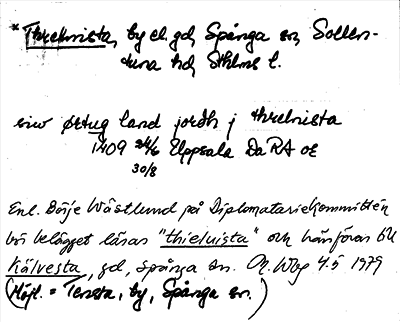 * Threlnista, by el. gd, Spånga sn, Sollen-
tuna hd, Sthlms l.
enw örtug land jordh j threlnista
1409 24/6 Uppsala Da RA oe
30/8
Enl. Börje Westlund på Diplomatariekommittén
bör belägget läsas "thieluista" och hänföras till
Kälvesta, gd, Spånga sn. 4.5 1979
(Möjl. = Tensta, by, Spånga sn.)